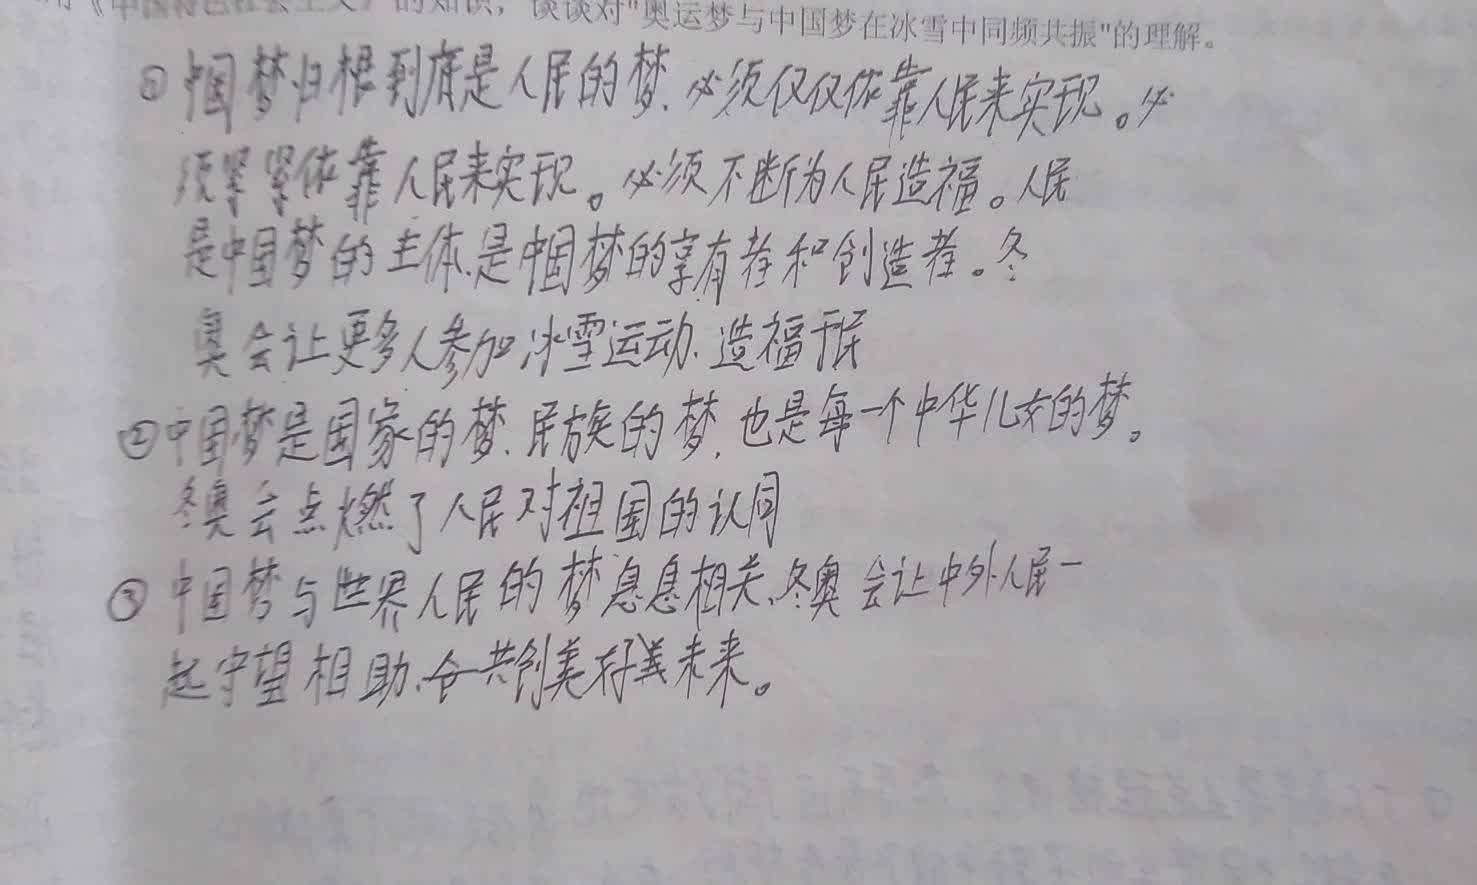 用《中国特色社会主义》的知识，谈谈对"奥运梦与中国梦在冰雪中同频共振"的理解。
①中国梦归根到底是人民的梦.必须仅仅依靠人民来实现。必
须紧紧依靠人民来实现。必须不断为人民造福。人民
是中国梦的主体.是中国梦的享有者和创造者。冬
奥会让更多人参加冰雪运动.造福于民
②中国梦是国家的梦.民族的梦,也是每一个中华儿女的梦。
冬奥会点燃了人民对祖国的认同
③中国梦与世界人民的梦息息相关.冬奥会让中外人民一
起守望相助.共创美好未来。